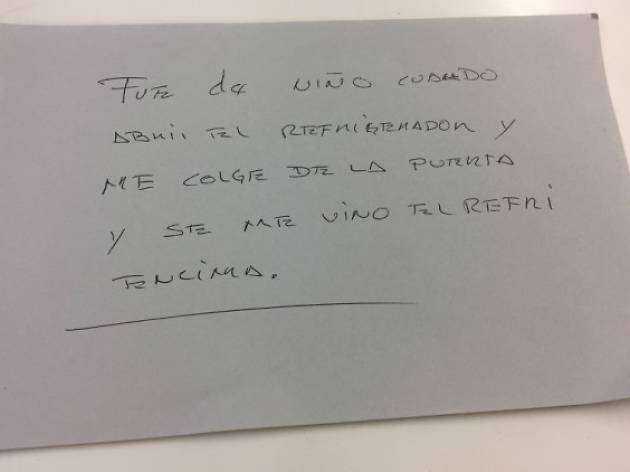 FUE de NIÑO CUANDO
ABRIR EL REFRIGERADOR Y
ME COLGE DE LA PUERTA
Y SE ME VINO EL REFRI
ENCIMA.